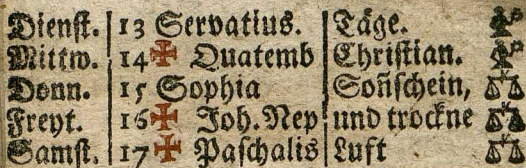 Dienſt. 13 Servatius. Täge.
Mittw. 14 Quatemb Chriſtian.
Donn. 15 Sophia Soñſchein,
Freyt. 16 Joh. Nep und trockne
Samſt. 17 Paſchalis Luft